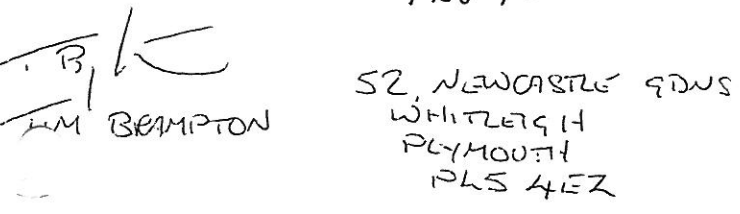 TIM BRAMPTON
52, NEWCASTLE GDNS
WHITLEIGH
PLYMOUTH
PL5 4EZ